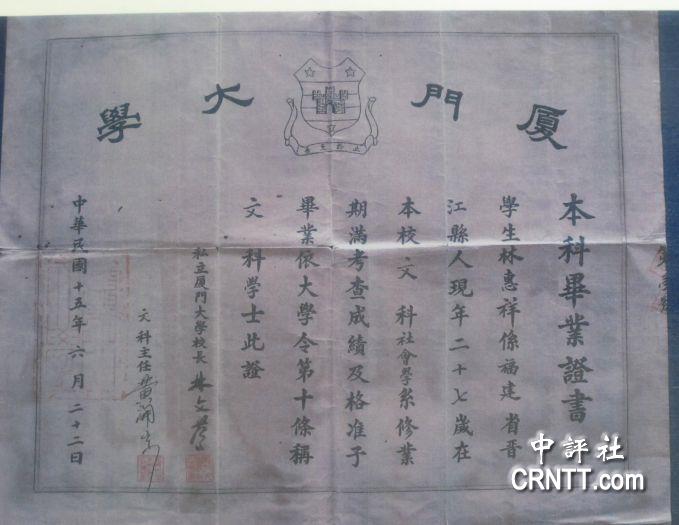 厦門大學
止於至善
本科畢業證書
學生林惠祥係福建省晋
江縣人現年二十七歲在
本校文科社會學系修業
期滿考查成績及格准予
畢業依大學令第十條稱
文科學士此證
私立厦門大學校長 林文慶
文科主任
中華民國十五年六月二十二日
中評社
CRNTT.com